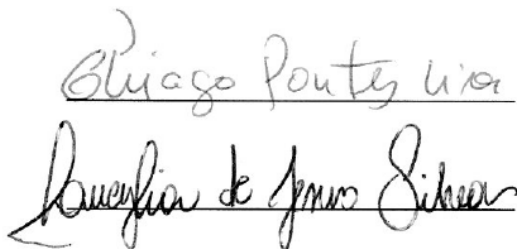 Thiago Pontes Lira
de Jesus Silva